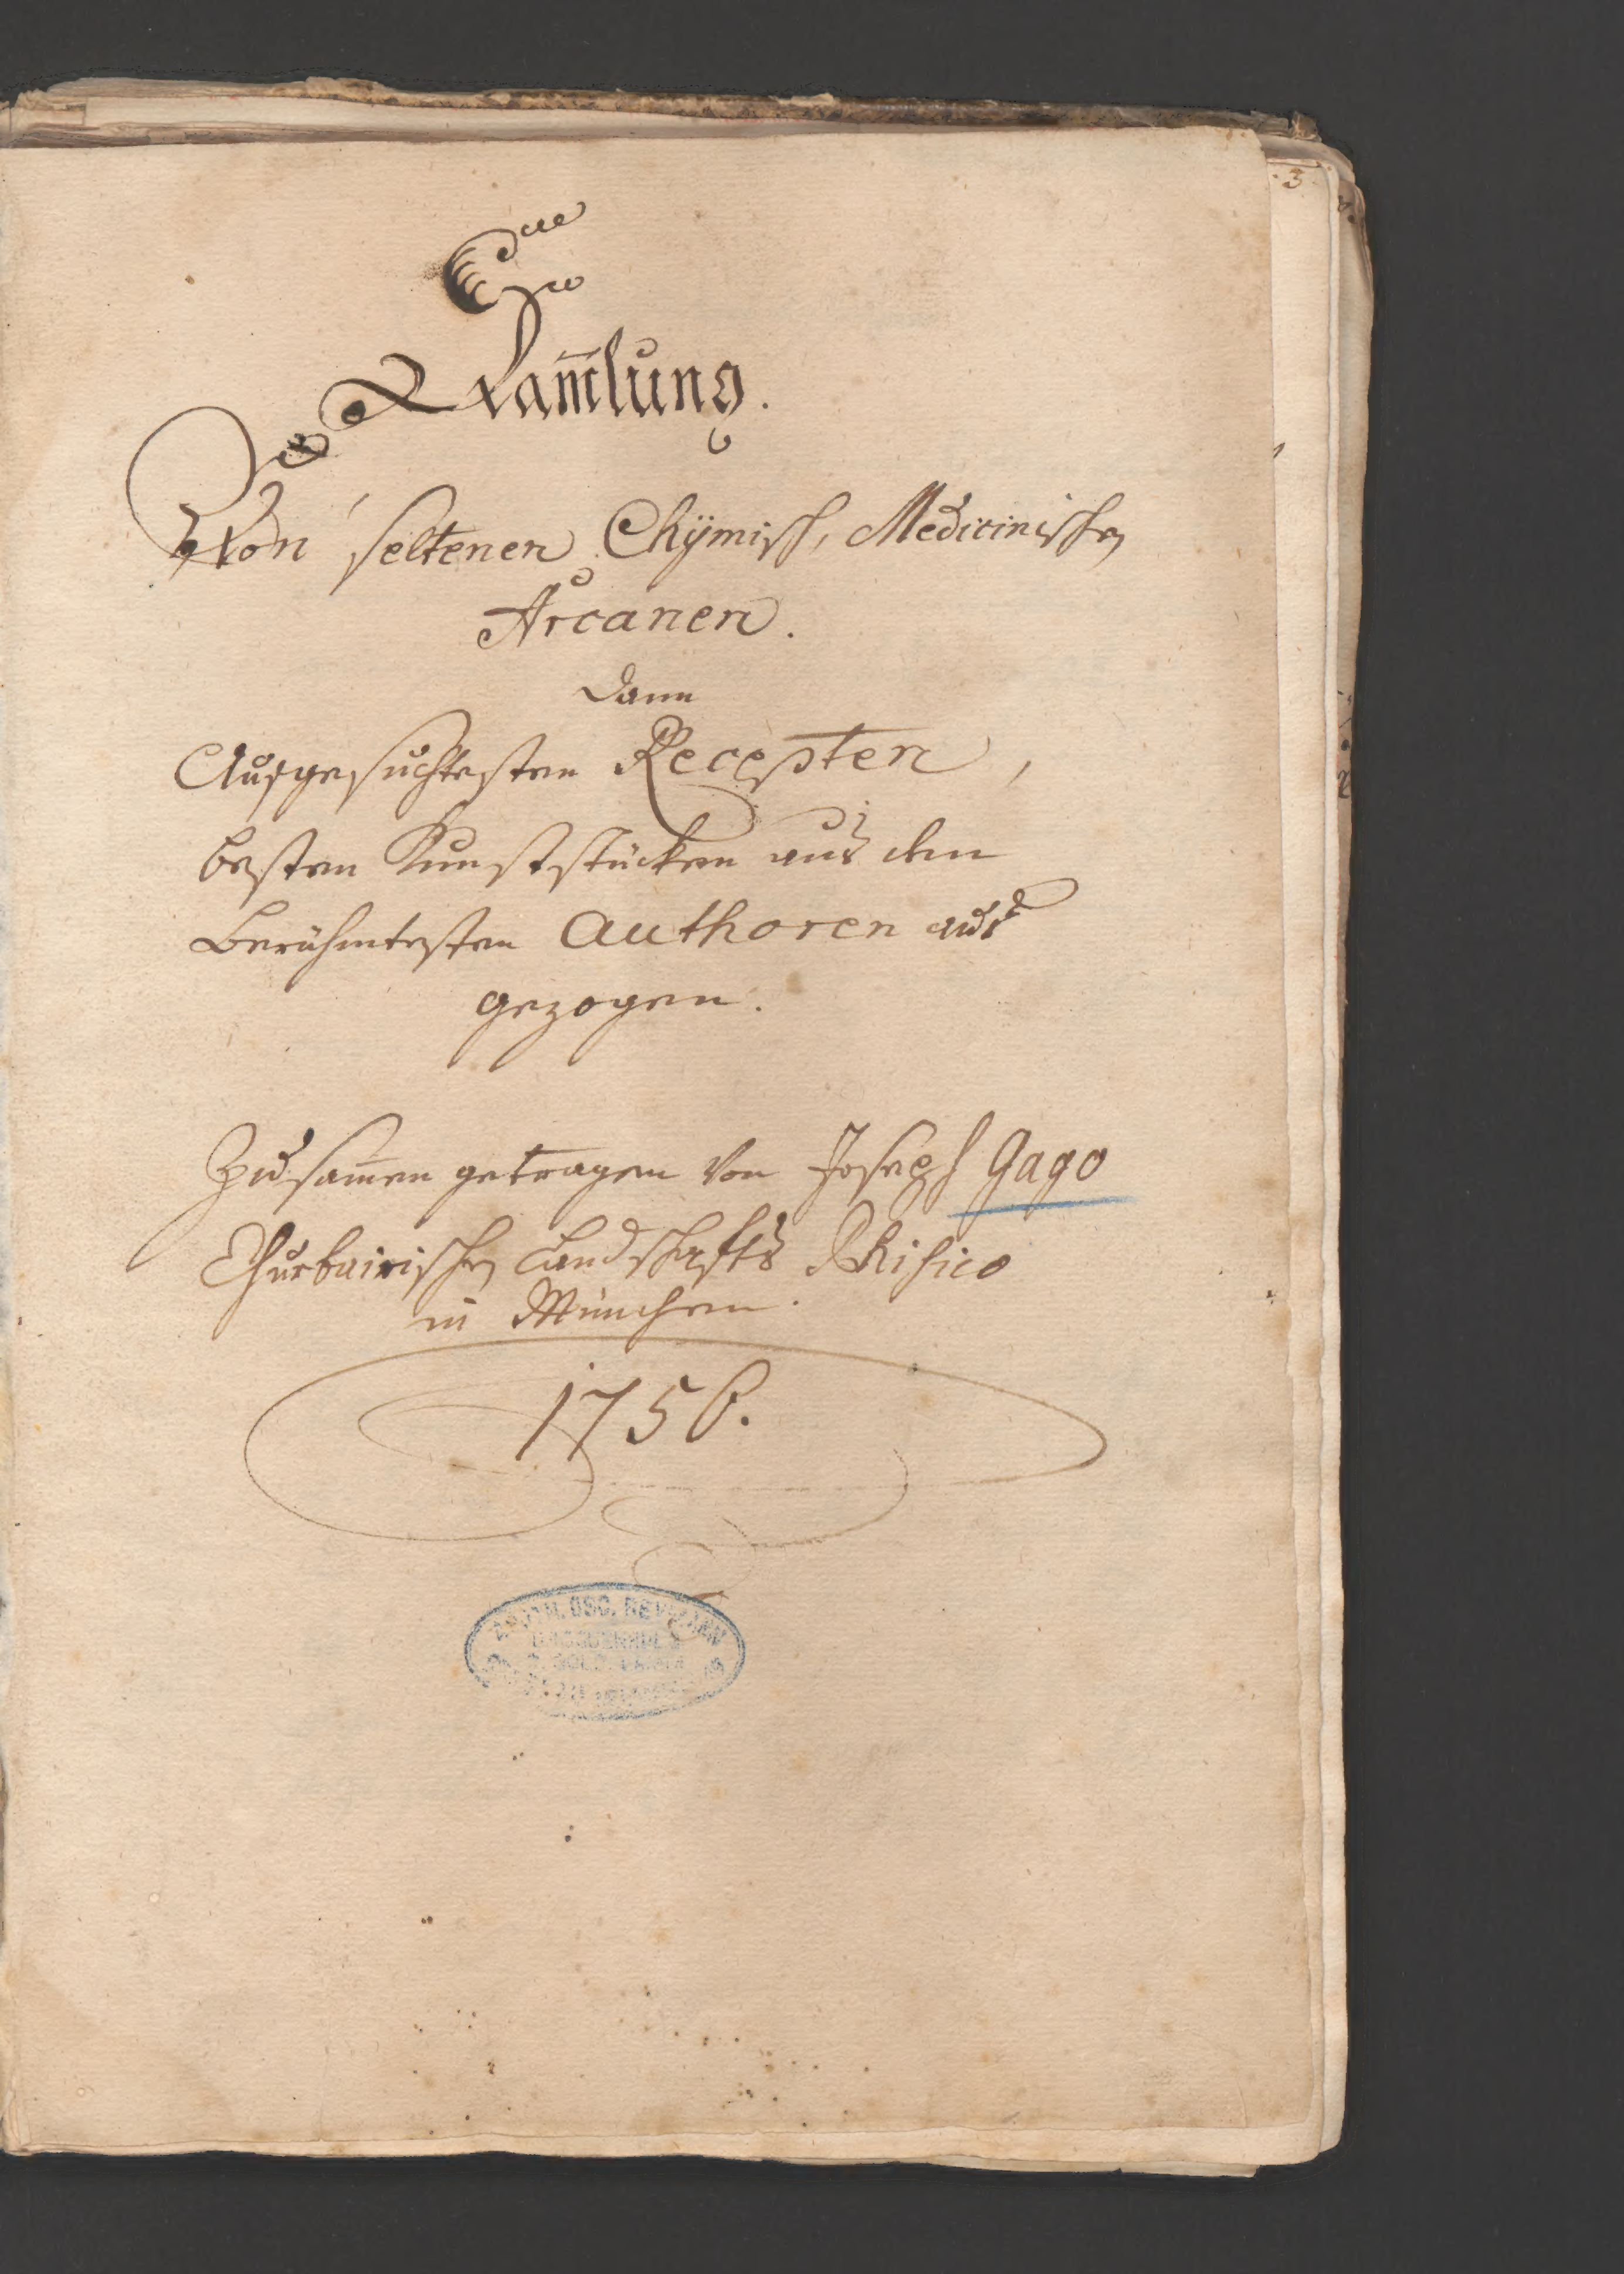 Sam̄lung.
Von seltenen Chÿmisch, Medicinischen
Arcanen.
dann
Ausgesuchtesten Recepten,
besten Kunststücken aus den
berühmtesten Authoren aus
gezogen.
Zusam̄en getragen von Joseph Gago
Churbairischen Landschafts Phisico
in München.
1756.
3